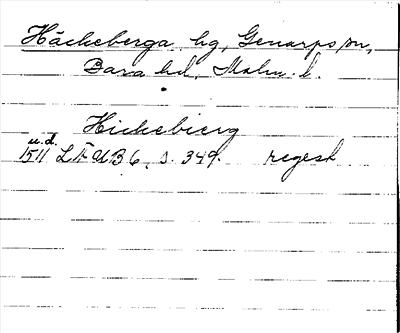 Häckeberga hg, Genarps sn,
Bara hd, Malm. l.
Hickebierg
u.d.
1511 L Ä UB 6, s. 349. regest